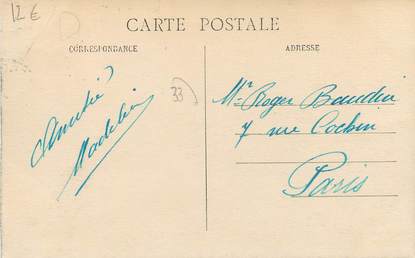 12 €
CARTE POSTALE
CORRESPONDANCE
ADRESSE
33
Amitié
Madeleine
Mr Roger Baudin
7 rue Cochin
Paris